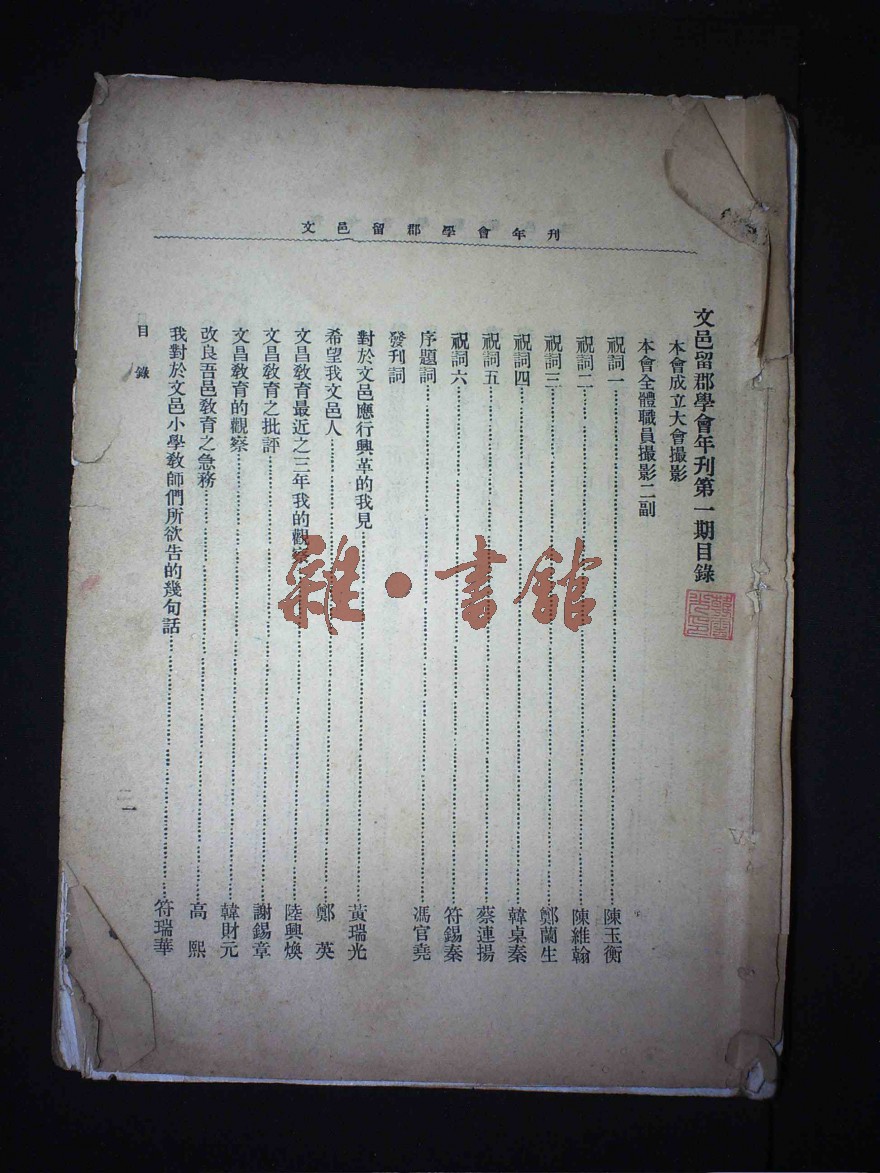 文邑留郡學會年刊
文邑留郡學會年刊第一期目錄
本會成立大會撮影
本會全體職員撮影二副
祝詞一……陳玉衡
祝詞二……陳維翰
祝詞三……鄭蘭生
祝詞四……韓桌秦
祝詞五……蔡連揚
祝詞六……符錫秦
序題詞……馮官堯
發刊詞
對於文邑應行興革的我見……黃瑞光
希望我文邑人……鄭英
文昌敎育最近之三年我的觀察……陸興煥
文昌敎育之批評……謝錫章
文昌敎育的觀察……韓財元
改良吾邑敎育之急務……高熙
我對於文邑小學敎師們所欲告的幾句話……符瑞華
目錄
一
雜·書館